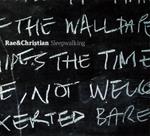 F THE WALLPAPE
Rae&Christian Sleepwalking
THE TIME
E, NOT WELCO
XERTED BARE